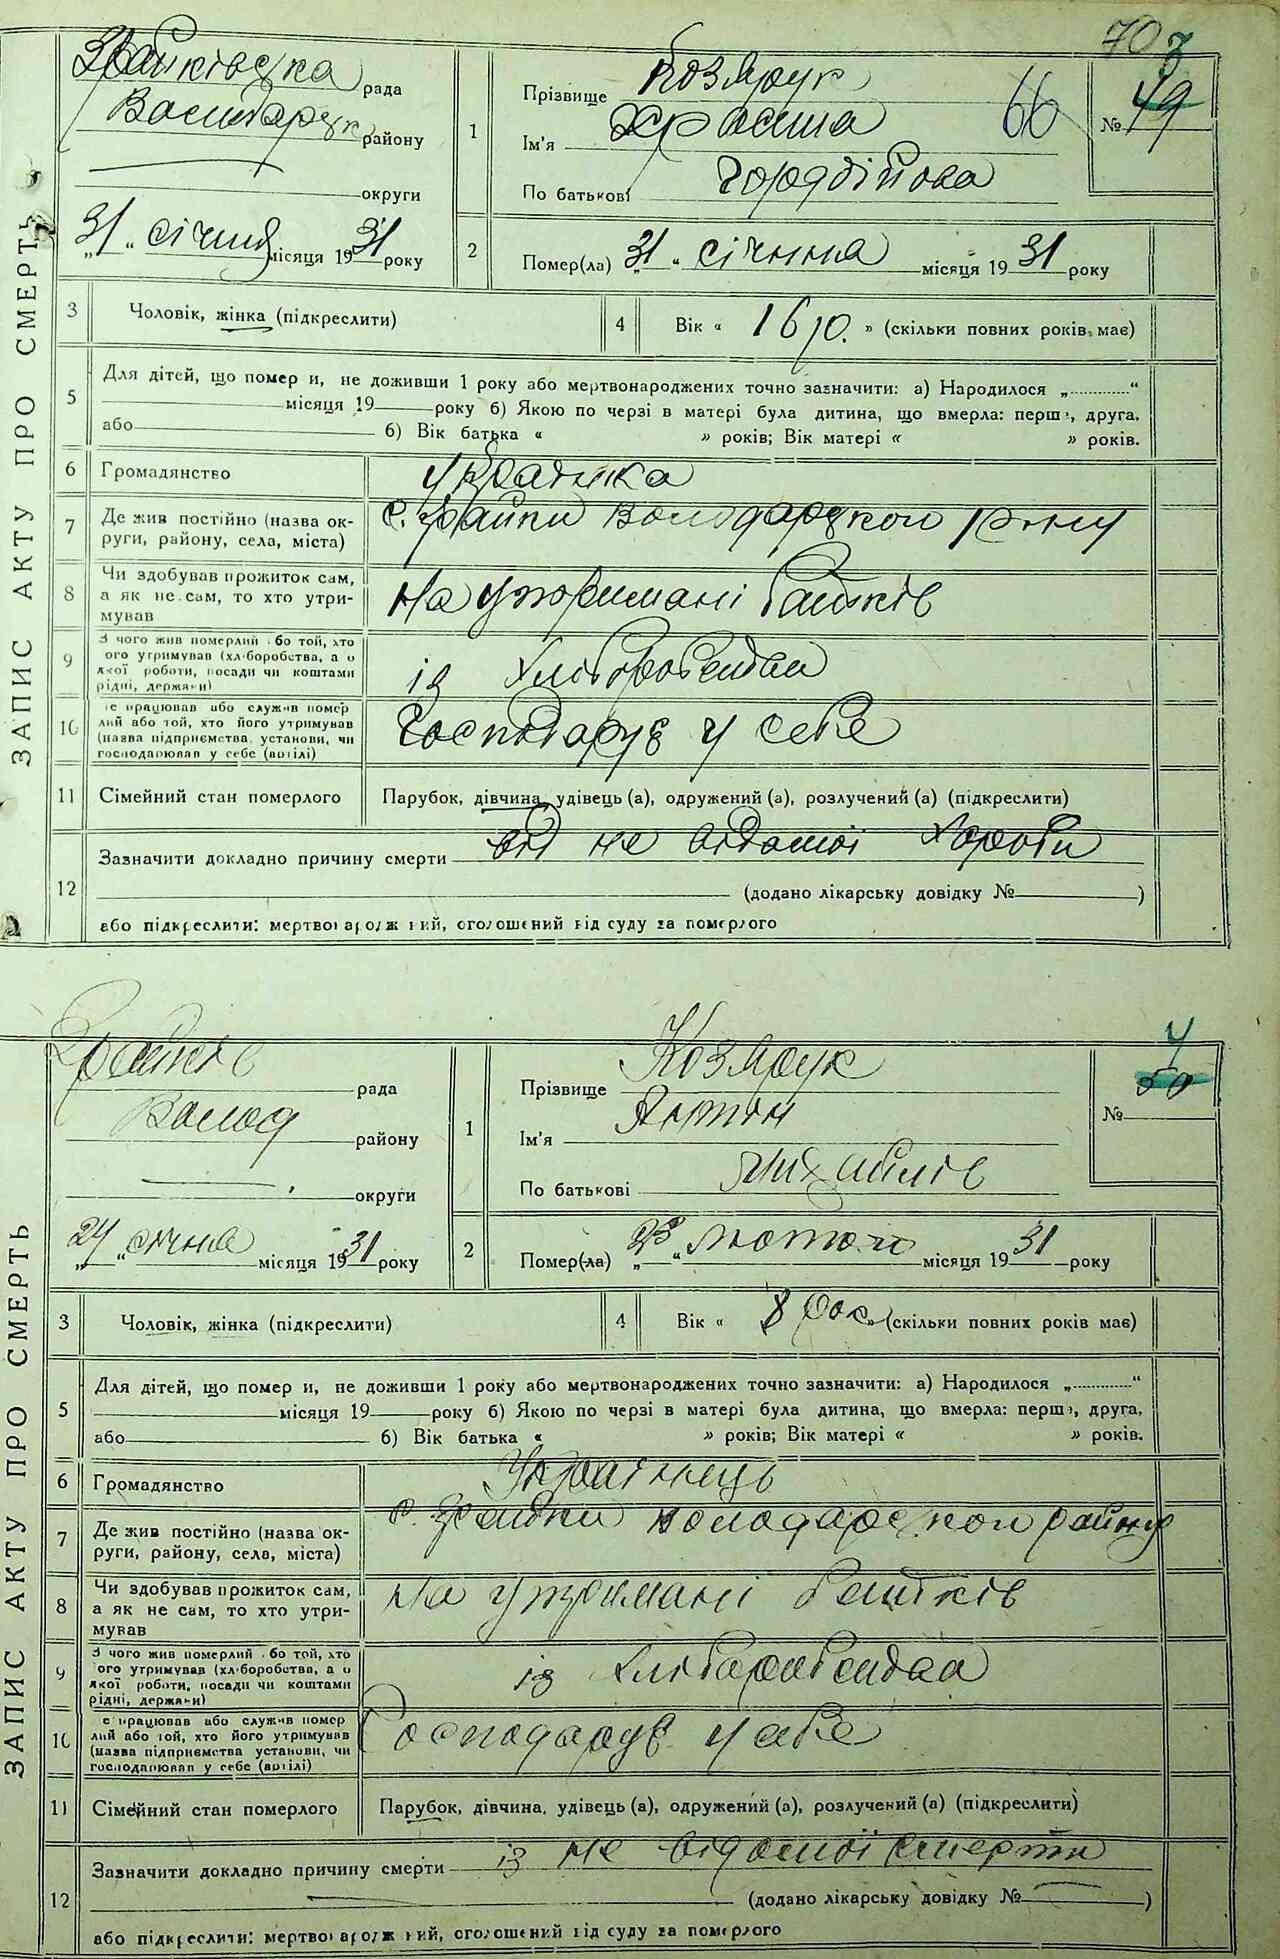 70
3
49
рада
району
округи
„31“ січня місяця 1931 року
1
Прізвище Козярук
Ім'я
66
По батькові Гордійова
№
2
Помер(ла) „31“ січння місяця 1931 року
3
Чоловік, жінка (підкреслити)
4
Вік « 16 р. » (скільки повних років має)
5
Для дітей, що помер и, не доживши 1 року або мертвонароджених точно зазначити: а) Народилося „............“
місяця 19 року б) Якою по черзі в матері була дитина, що вмерла: перш , друга,
або б) Вік батька « » років; Вік матері « » років.
6
Громадянство
7
Де жив постійно (назва ок-
руги, району, села, міста)
8
Чи здобував прожиток сам,
а як не сам, то хто утри-
мував
на утримані батьків
9
З чого жив померлий бо той, хто
ого утримував (хл боробства, а о
якої роботи, посади чи коштами
рідні, держави)
із Хлібаробства
10
е працював або служив помер
лий або той, хто його утримував
(назва підприємства установи, чи
господарював у себе (вдіілі)
Господарує у себе
11
Сімейний стан померлого
Парубок, дівчина, удівець (а), одружений (а), розлучений (а) (підкреслити)
12
Зазначити докладно причину смерти від не відомої Хороби
(додано лікарську довідку № )
або підкреслити: мертвонародж ний, оголошений від суду за померлого
ЗАПИС АКТУ ПРО СМЕРТЬ
4
50
рада
Волод району
округи
„24“ січня місяця 1931 року
1
Прізвище Козярук
Ім'я Антін
По батькові Михайлів
№
2
Помер(ла) „23“ лютого місяця 1931 року
3
Чоловік, жінка (підкреслити)
4
Вік « 8 рок » (скільки повних років має)
5
Для дітей, що помер и, не доживши 1 року або мертвонароджених точно зазначити: а) Народилося „............“
місяця 19 року б) Якою по черзі в матері була дитина, що вмерла: перш , друга,
або б) Вік батька « » років; Вік матері « » років.
6
Громадянство Українець
7
Де жив постійно (назва ок-
руги, району, села, міста)
8
Чи здобував прожиток сам,
а як не сам, то хто утри-
мував
на утримані батьків
9
З чого жив померлий бо той, хто
ого утримував (хл боробства, а о
якої роботи, посади чи коштами
рідні, держави)
із Хлібаробства
10
е працював або служив помер
лий або той, хто його утримував
(назва підприємства установи, чи
господарював у себе (вдіілі)
Господарує у себе
11
Сімейний стан померлого
Парубок, дівчина, удівець (а), одружений (а), розлучений (а) (підкреслити)
12
Зазначити докладно причину смерти із не відомої смерти
(додано лікарську довідку № )
або підкреслити: мертвонародж ний, оголошений від суду за померлого
ЗАПИС АКТУ ПРО СМЕРТЬ